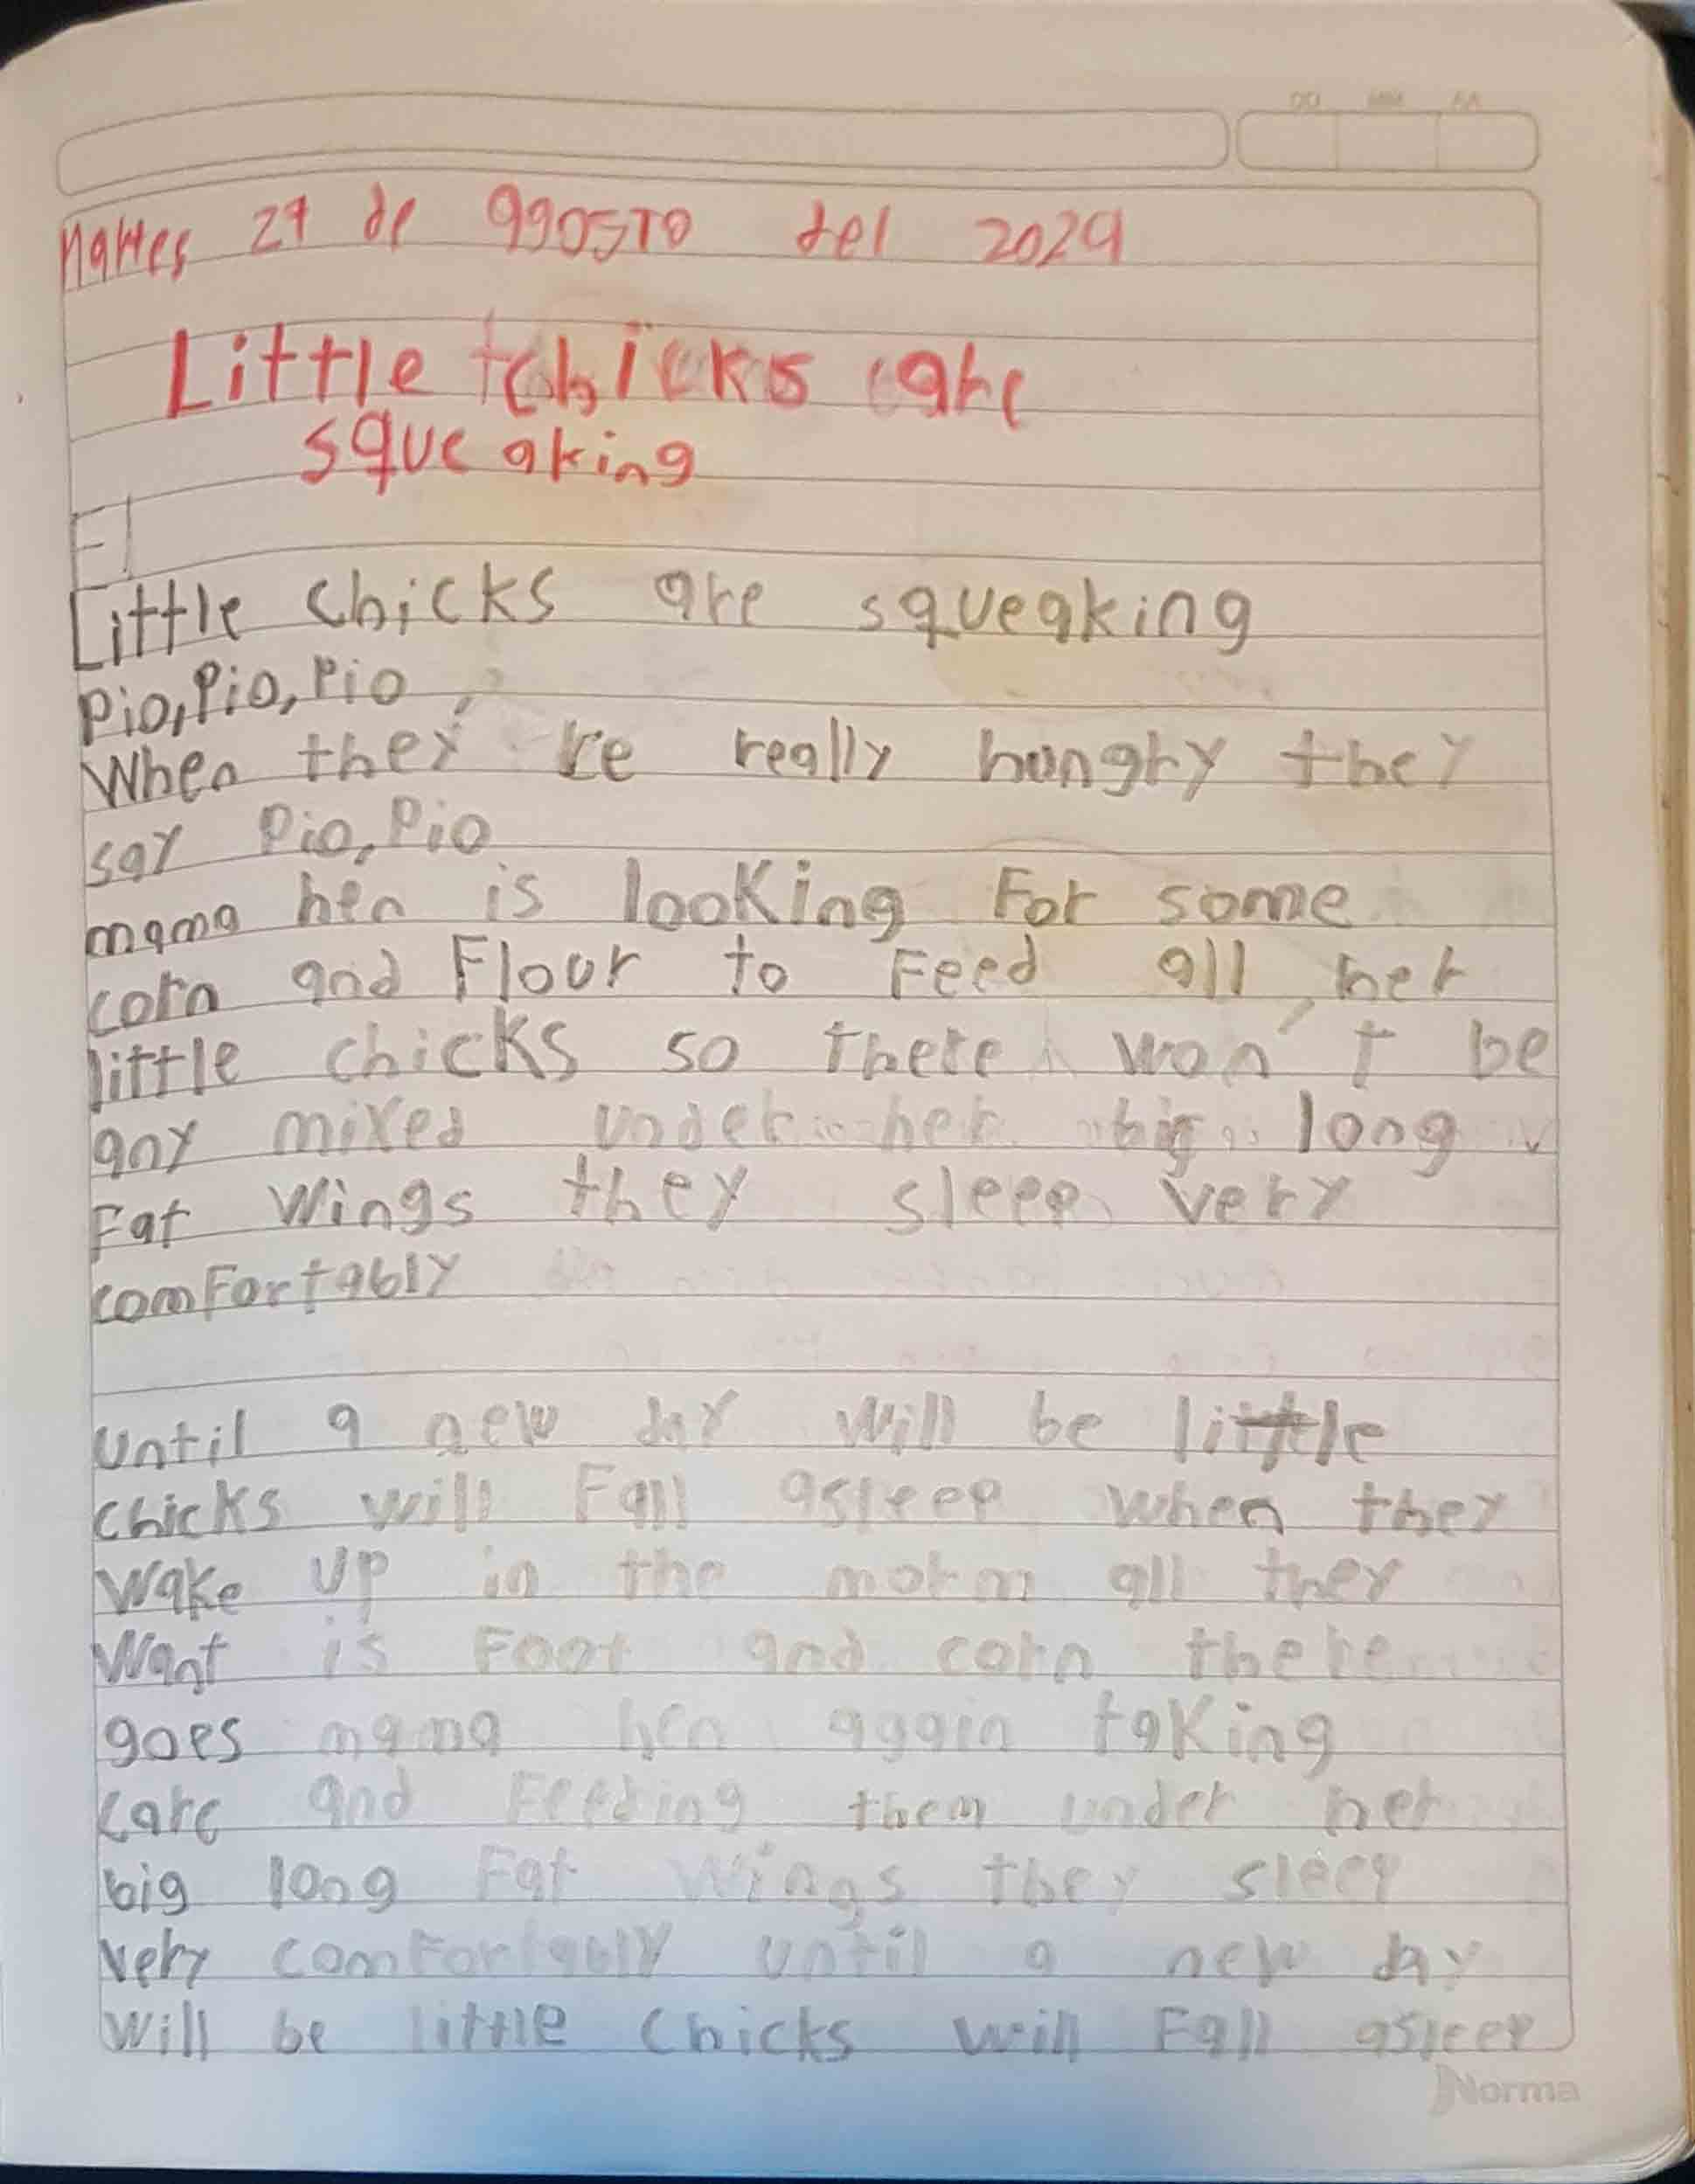 DD MM AA
Martes 27 de agosto del 2024
Little chicks are
squeaking
El
Little chicks are squeaking
Pio, Pio, Pio,
When they're really hungry they
say Pio, Pio
mama hen is looking For some
corn and Flour to Feed all her
little chicks so there won't be
any mixed under her big long
Fat Wings they sleep very
comFortably
until a new day will be little
chicks will Fall asleep when they
Wake up in the morm all they
Want is Foot and corn there
goes mama hen again taking
care and Feeding them under her
big long Fat Wings they sleep
very comFortably until a new day
Will be little chicks will Fall asleep
Norma